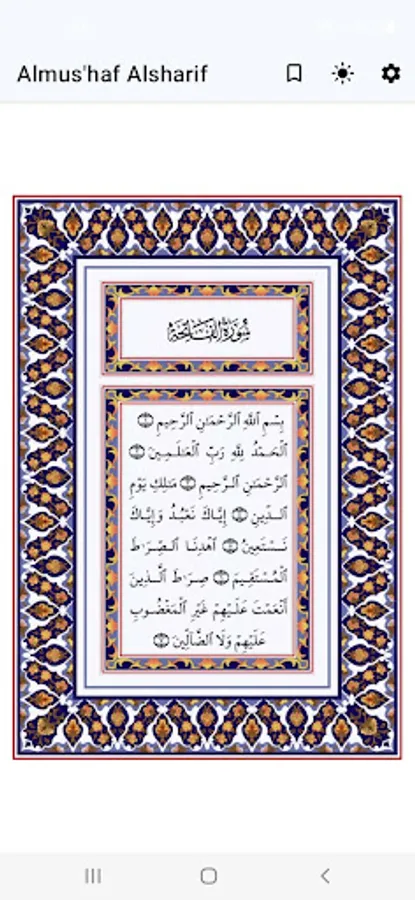 Almus'haf Alsharif
سُورَةُ الفَاتِحَةِ
بِسْمِ ٱللَّهِ ٱلرَّحْمَٰنِ ٱلرَّحِيمِ ۝١
ٱلْحَمْدُ لِلَّهِ رَبِّ ٱلْعَٰلَمِينَ ۝٢
ٱلرَّحْمَٰنِ ٱلرَّحِيمِ ۝٣ مَٰلِكِ يَوْمِ
ٱلدِّينِ ۝٤ إِيَّاكَ نَعْبُدُ وَإِيَّاكَ
نَسْتَعِينُ ۝٥ ٱهْدِنَا ٱلصِّرَٰطَ
ٱلْمُسْتَقِيمَ ۝٦ صِرَٰطَ ٱلَّذِينَ
أَنْعَمْتَ عَلَيْهِمْ غَيْرِ ٱلْمَغْضُوبِ
عَلَيْهِمْ وَلَا ٱلضَّآلِّينَ ۝٧